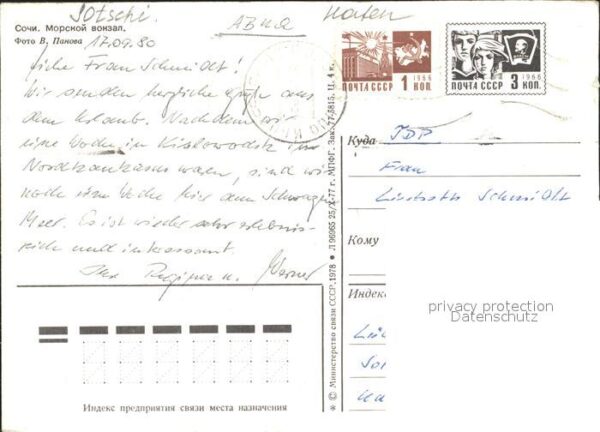 Sotschi.
Hafen
АВИА
Сочи. Морской вокзал.
Фото В. Панова
17.09.80
Liebe Frau Schmidt!
Wir senden herzliche Grüße aus
dem Urlaub. Nachdem wir
eine Woche in Kislowodsk im
Nordkaukasus waren, sind wir
noch eine Woche hier am Schwarzen
Meer. Es ist wieder sehr erlebnis-
reich und interessant.
Ihre Regina u. Werner
ПОЧТА СССР
1 КОП.
1966
ПОЧТА СССР
3 КОП.
1966
Куда ГДР
Frau
Schmidt
Кому
Индекс
privacy protection
Datenschutz
Индекс предприятия связи места назначения
* © Министерство связи СССР, 1978 • Л 96965 25/X-77 г. МПФГ. Зак. 77-5815. Ц. 4 к.